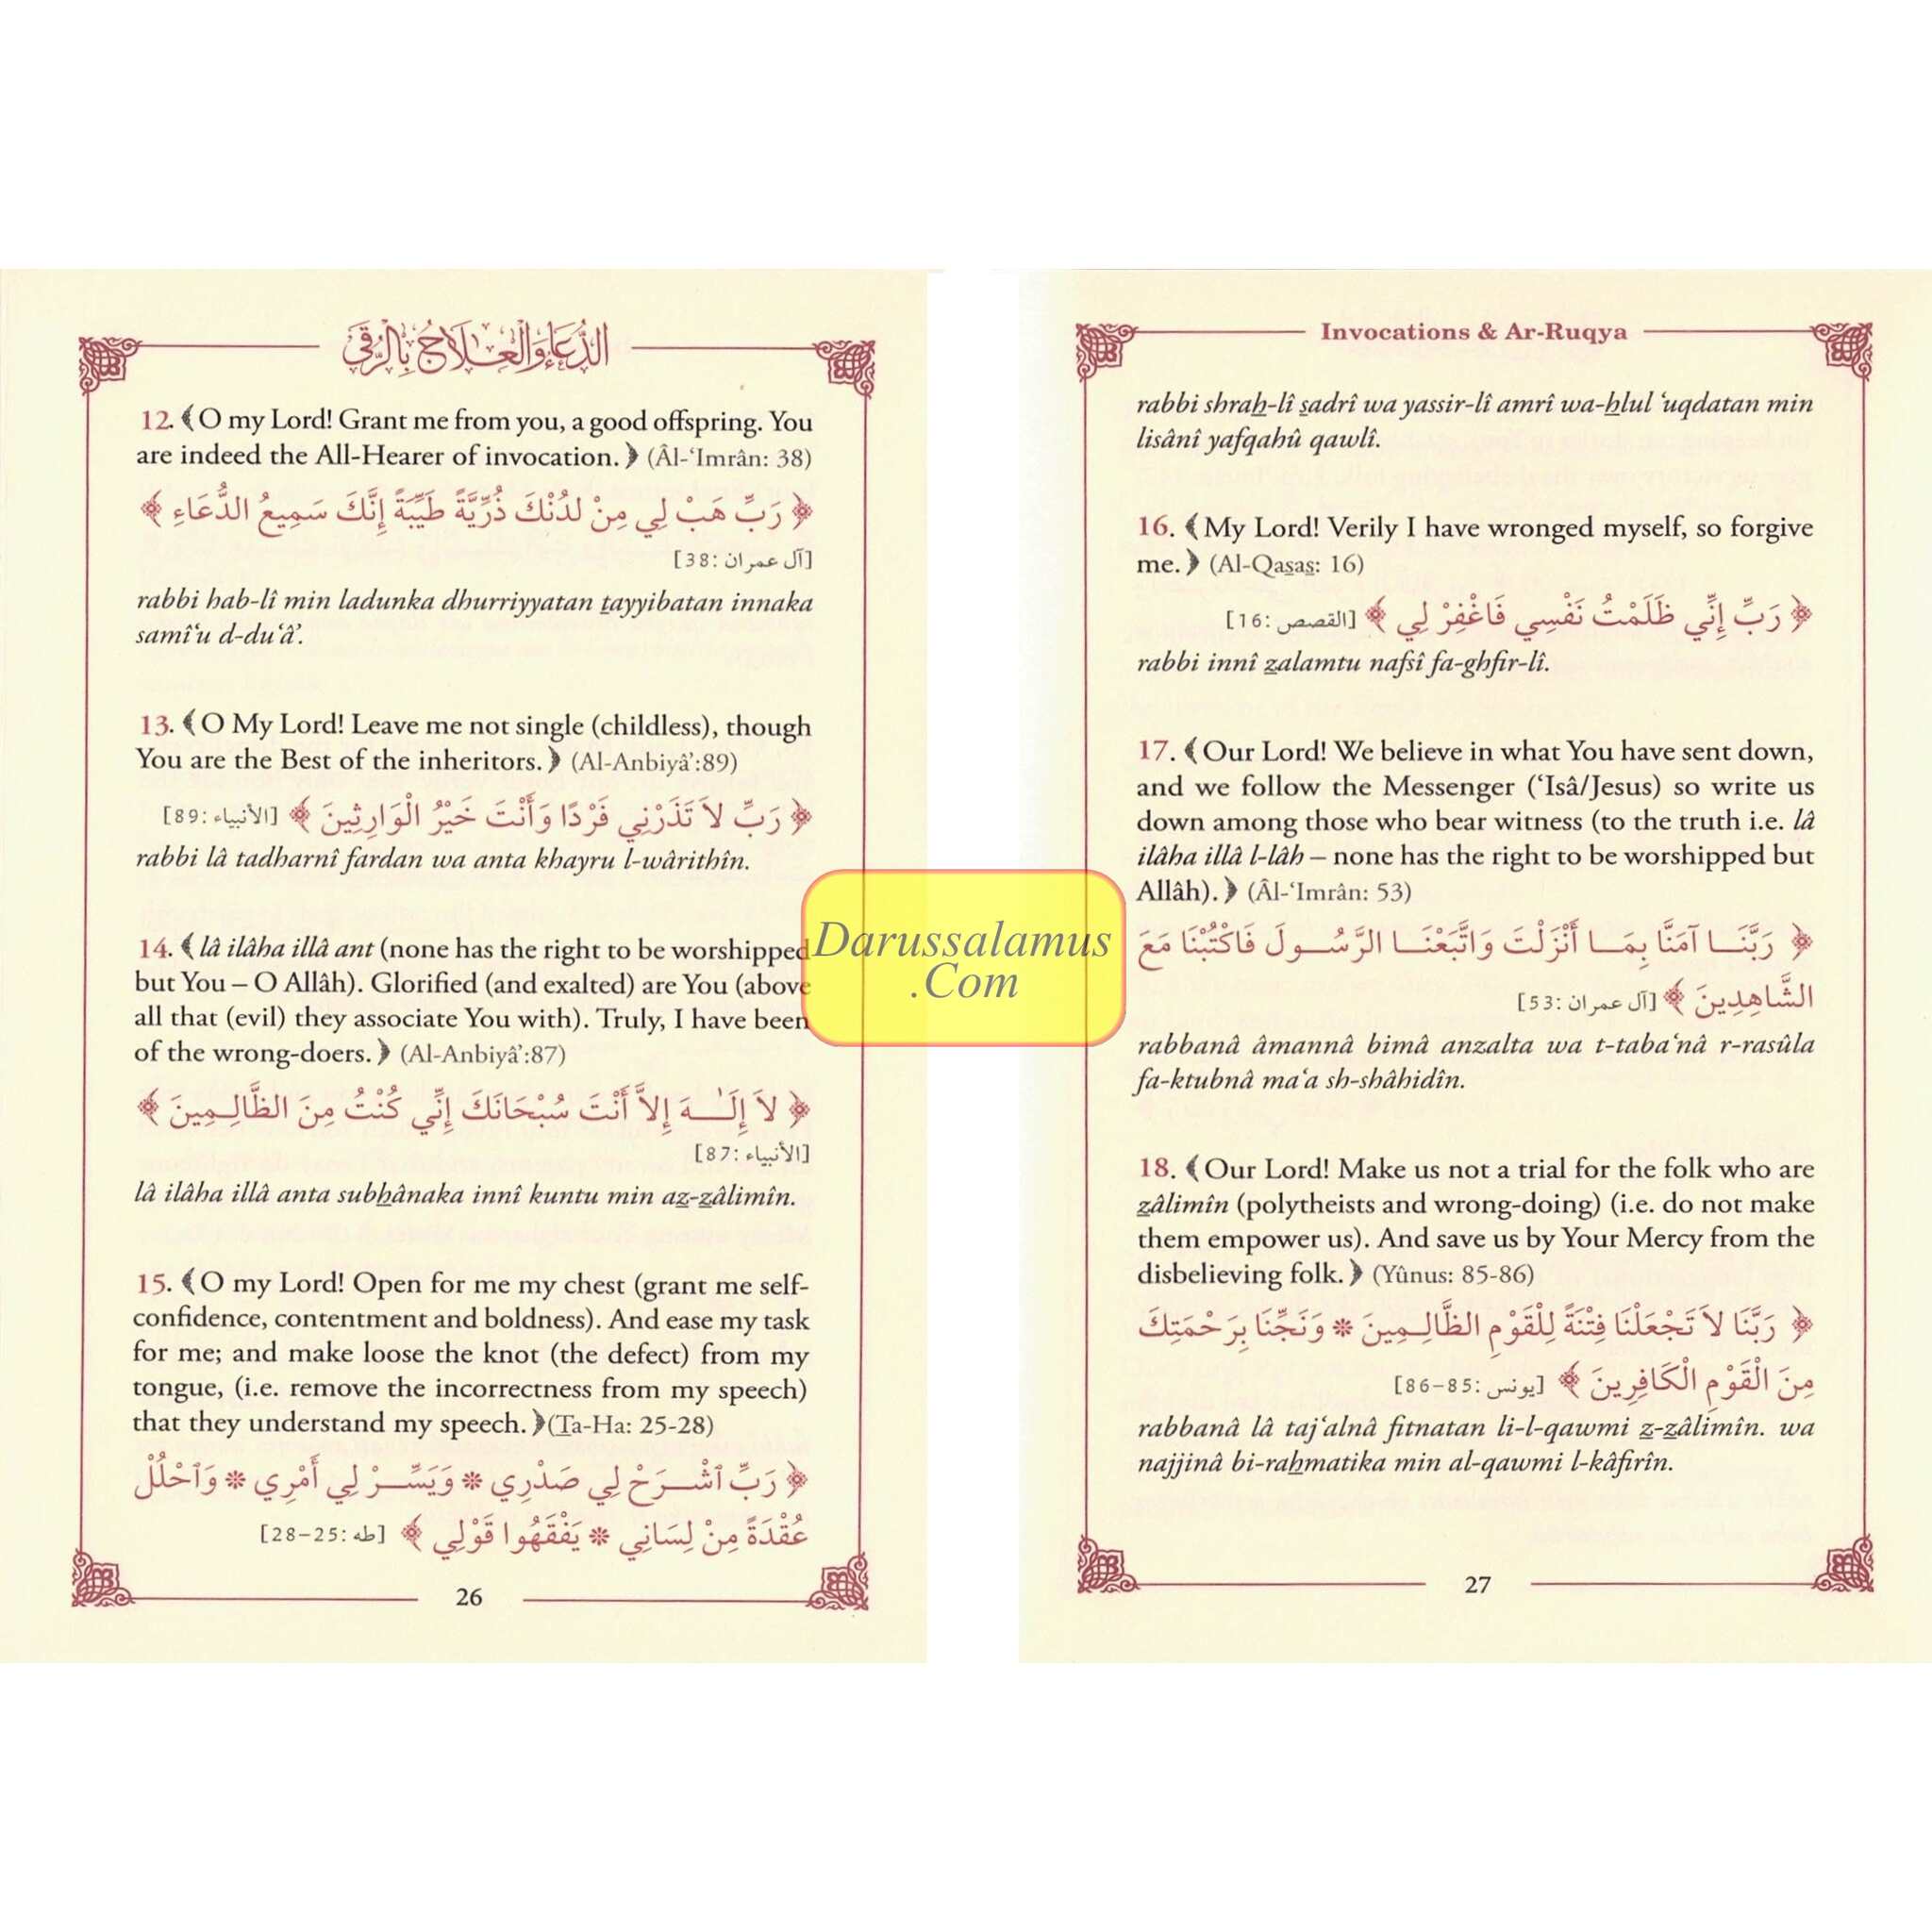 الدُّعَاءُ وَالْعِلَاجُ بِالرُّقَى
12. ﴾O my Lord! Grant me from you, a good offspring. You
are indeed the All-Hearer of invocation.﴿ (Âl-‘Imrân: 38)
﴿ رَبِّ هَبْ لِي مِنْ لَدُنْكَ ذُرِّيَّةً طَيِّبَةً إِنَّكَ سَمِيعُ الدُّعَاءِ ﴾
[آل عمران :38]
rabbi hab-lî min ladunka dhurriyyatan ṯayyibatan innaka
samî‘u d-du‘â’.
13. ﴾O My Lord! Leave me not single (childless), though
You are the Best of the inheritors.﴿ (Al-Anbiyâ’:89)
﴿ رَبِّ لاَ تَذَرْنِي فَرْدًا وَأَنْتَ خَيْرُ الْوَارِثِينَ ﴾ [الأنبياء :89]
rabbi lâ tadharnî fardan wa anta khayru l-wârithîn.
14. ﴾lâ ilâha illâ ant (none has the right to be worshipped
but You – O Allâh). Glorified (and exalted) are You (above
all that (evil) they associate You with). Truly, I have been
of the wrong-doers.﴿ (Al-Anbiyâ’:87)
﴿ لاَ إِلَـٰـهَ إِلاَّ أَنْتَ سُبْحَانَكَ إِنِّي كُنْتُ مِنَ الظَّالِـمِينَ ﴾
[الأنبياء :87]
lâ ilâha illâ anta subẖânaka innî kuntu min aẕ-ẕâlimîn.
15. ﴾O my Lord! Open for me my chest (grant me self-
confidence, contentment and boldness). And ease my task
for me; and make loose the knot (the defect) from my
tongue, (i.e. remove the incorrectness from my speech)
that they understand my speech.﴿(Ṯa-Ha: 25-28)
﴿ رَبِّ ٱشْـرَحْ لِي صَدْرِي * وَيَسِّـرْ لِي أَمْرِي * وَٱحْلُلْ
عُقْدَةً مِنْ لِسَانِي * يَفْقَهُوا قَوْلِي ﴾ [طه :25-28]
26
Invocations & Ar-Ruqya
rabbi shraẖ-lî s̲adrî wa yassir-lî amrî wa-ẖlul ‘uqdatan min
lisânî yafqahû qawlî.
16. ﴾My Lord! Verily I have wronged myself, so forgive
me.﴿ (Al-Qas̲as̲: 16)
﴿ رَبِّ إِنِّي ظَلَمْتُ نَفْسِي فَاغْفِرْ لِي ﴾ [القصص :16]
rabbi innî ẕalamtu nafsî fa-ghfir-lî.
17. ﴾Our Lord! We believe in what You have sent down,
and we follow the Messenger (‘Isâ/Jesus) so write us
down among those who bear witness (to the truth i.e. lâ
ilâha illâ l-lâh – none has the right to be worshipped but
Allâh).﴿ (Âl-‘Imrân: 53)
﴿ رَبَّنَـا آمَنَّا بِمَـا أَنْزَلْتَ وَاتَّبَعْنَـا الرَّسُـولَ فَاكْتُبْنَا مَعَ
الشَّاهِدِينَ ﴾ [آل عمران :53]
rabbanâ âmannâ bimâ anzalta wa t-taba‘nâ r-rasûla
fa-ktubnâ ma‘a sh-shâhidîn.
18. ﴾Our Lord! Make us not a trial for the folk who are
ẕâlimîn (polytheists and wrong-doing) (i.e. do not make
them empower us). And save us by Your Mercy from the
disbelieving folk.﴿ (Yûnus: 85-86)
﴿ رَبَّنَا لاَ تَجْعَلْنَا فِتْنَةً لِلْقَوْمِ الظَّالِـمِينَ * وَنَجِّنَا بِرَحْمَتِكَ
مِنَ الْقَوْمِ الْكَافِرِينَ ﴾ [يونس :85-86]
rabbanâ lâ taj‘alnâ fitnatan li-l-qawmi ẕ-ẕâlimîn. wa
najjinâ bi-raẖmatika min al-qawmi l-kâfirîn.
27
Darussalamus
.Com